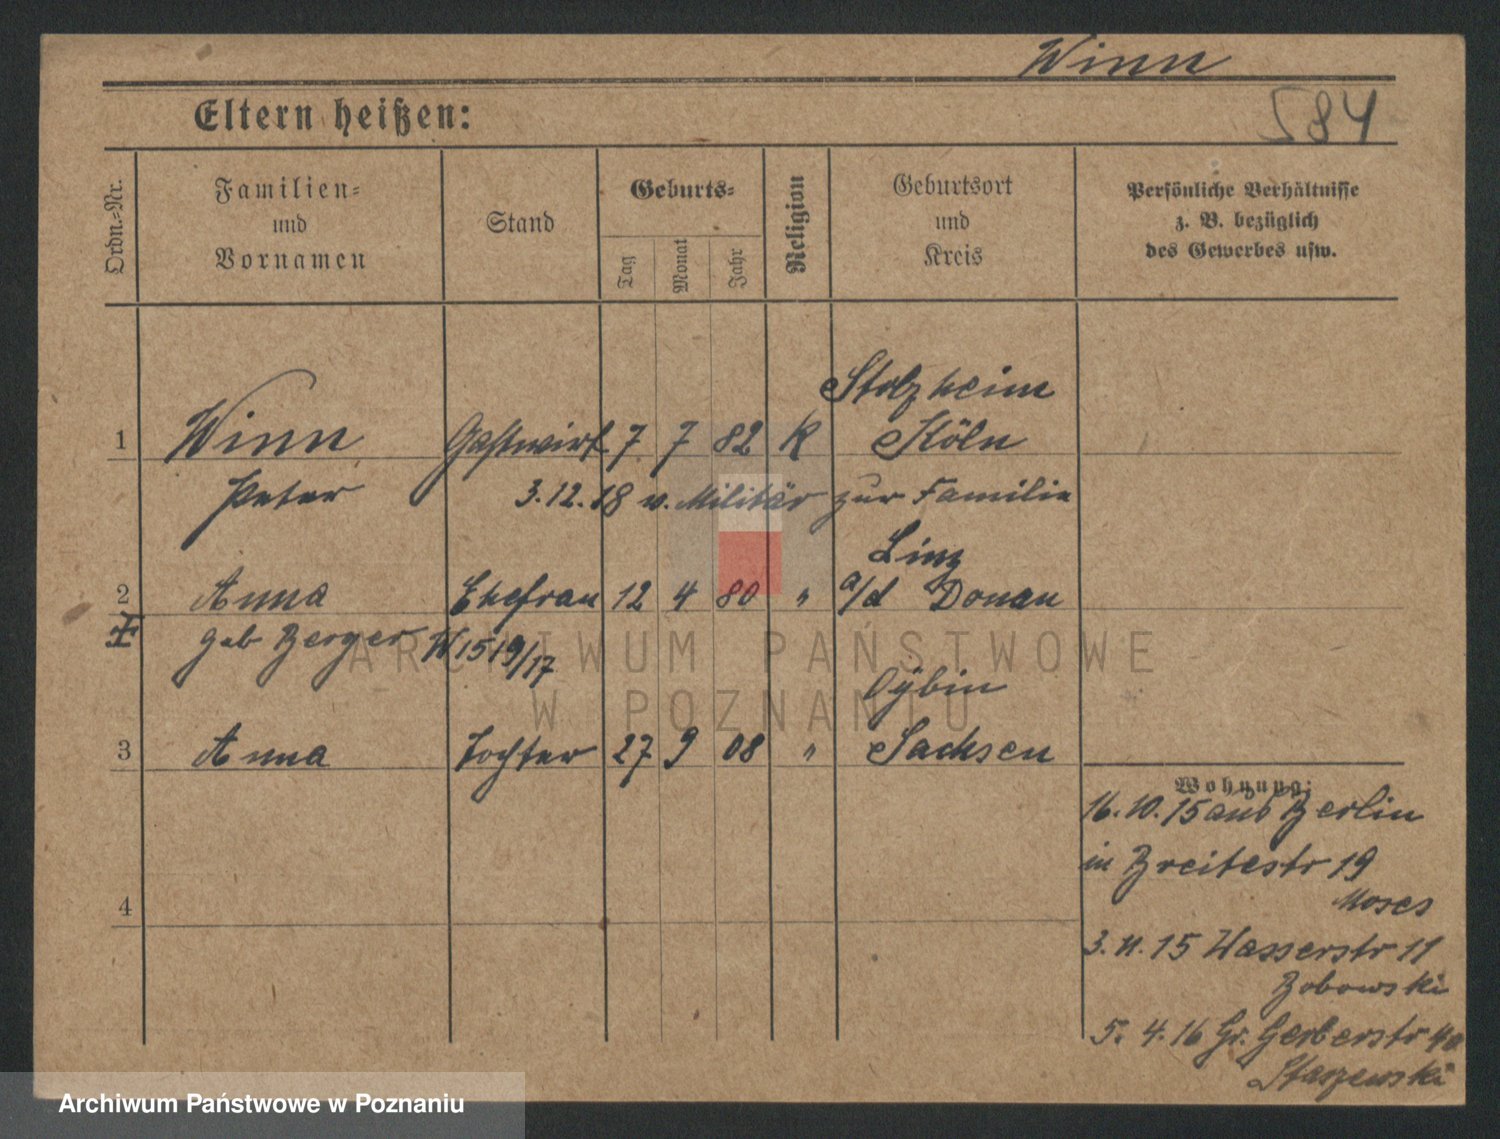 Winn
584
Eltern heißen:
Ordn.=Nr.
Familien=
und
Vornamen
Stand
Geburts=
Tag
Monat
Jahr
Religion
Geburtsort
und
Kreis
Persönliche Verhältnisse
z. B. bezüglich
des Gewerbes usw.
Stolzheim
1 Winn Gastwirt 7 7 82 K Köln
Peter 3.12.18 v. Militär zur Familie
Linz
2 Anna Ehefrau 12 4 80 " a/d Donau
geb Berger W 1519/17
Oybin
3 Anna Tochter 27 9 08 " Sachsen
4
Wohnung:
16.10.15 aus Berlin
in Breitestr 19
Moses
3.11.15 Wasserstr 11
Bobowski
5.4.16 Gr. Gerberstr
Staszewski
ARCHIWUM PAŃSTWOWE
W POZNANIU
Archiwum Państwowe w Poznaniu